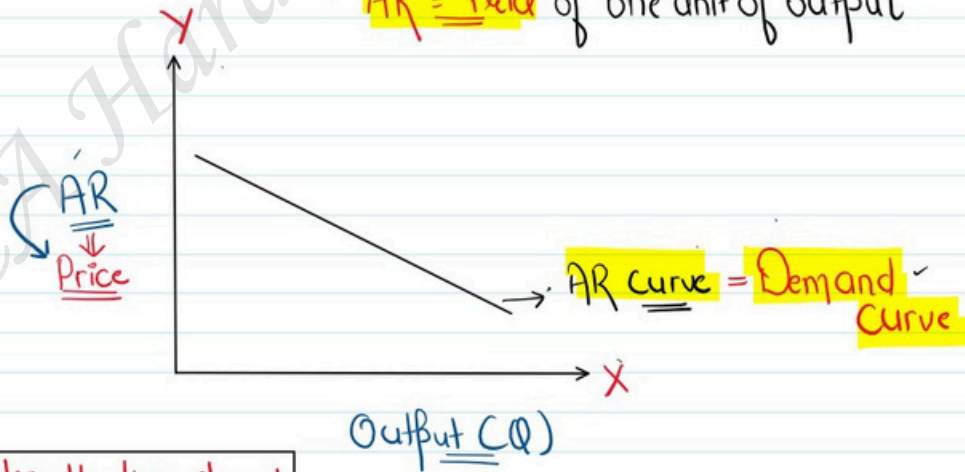 AR = Price of one unit of output
Y
AR
⇓
Price
→ AR Curve = Demand
Curve
X
Output (Q)